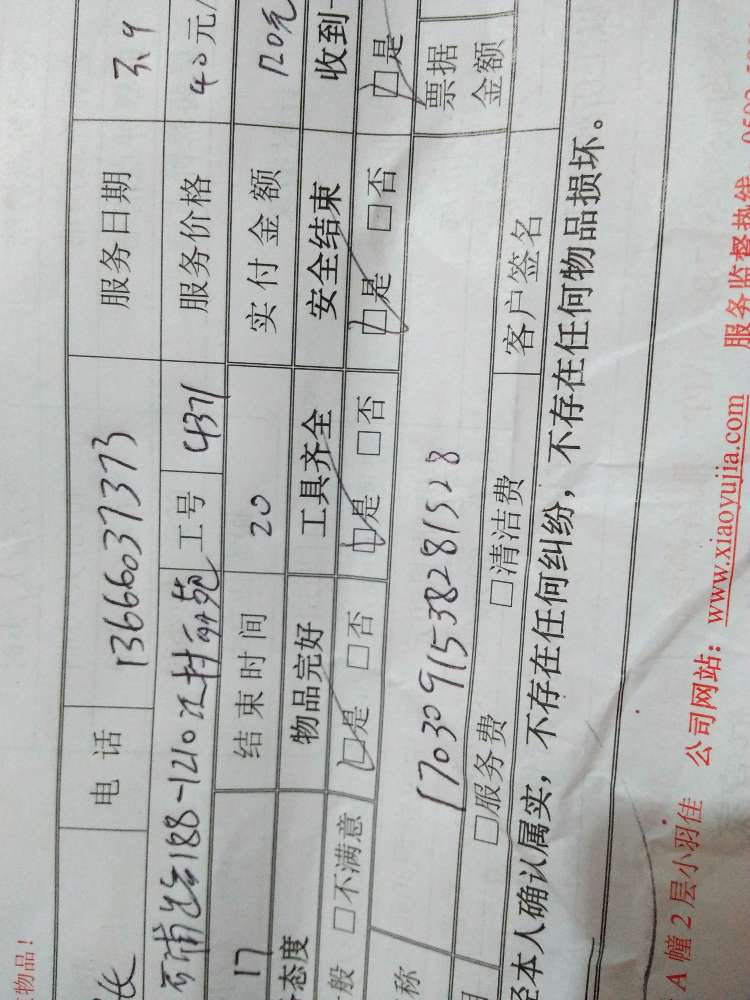 电话 13666037373 服务日期 3.9
188-1210 工号 4371 服务价格 40元/
17 结束时间 20 实付金额 120元
态度 物品完好 工具齐全 安全结束 收到
般 □不满意 □是 □否 □是 □否 □是 □否 □是
称 1703091538281528 票据金额
□服务费 □清洁费 客户签名
经本人确认属实，不存在任何纠纷，不存在任何物品损坏。
A幢2层小羽佳 公司网站：www.xiaoyujia.com 服务监督热线
物品！